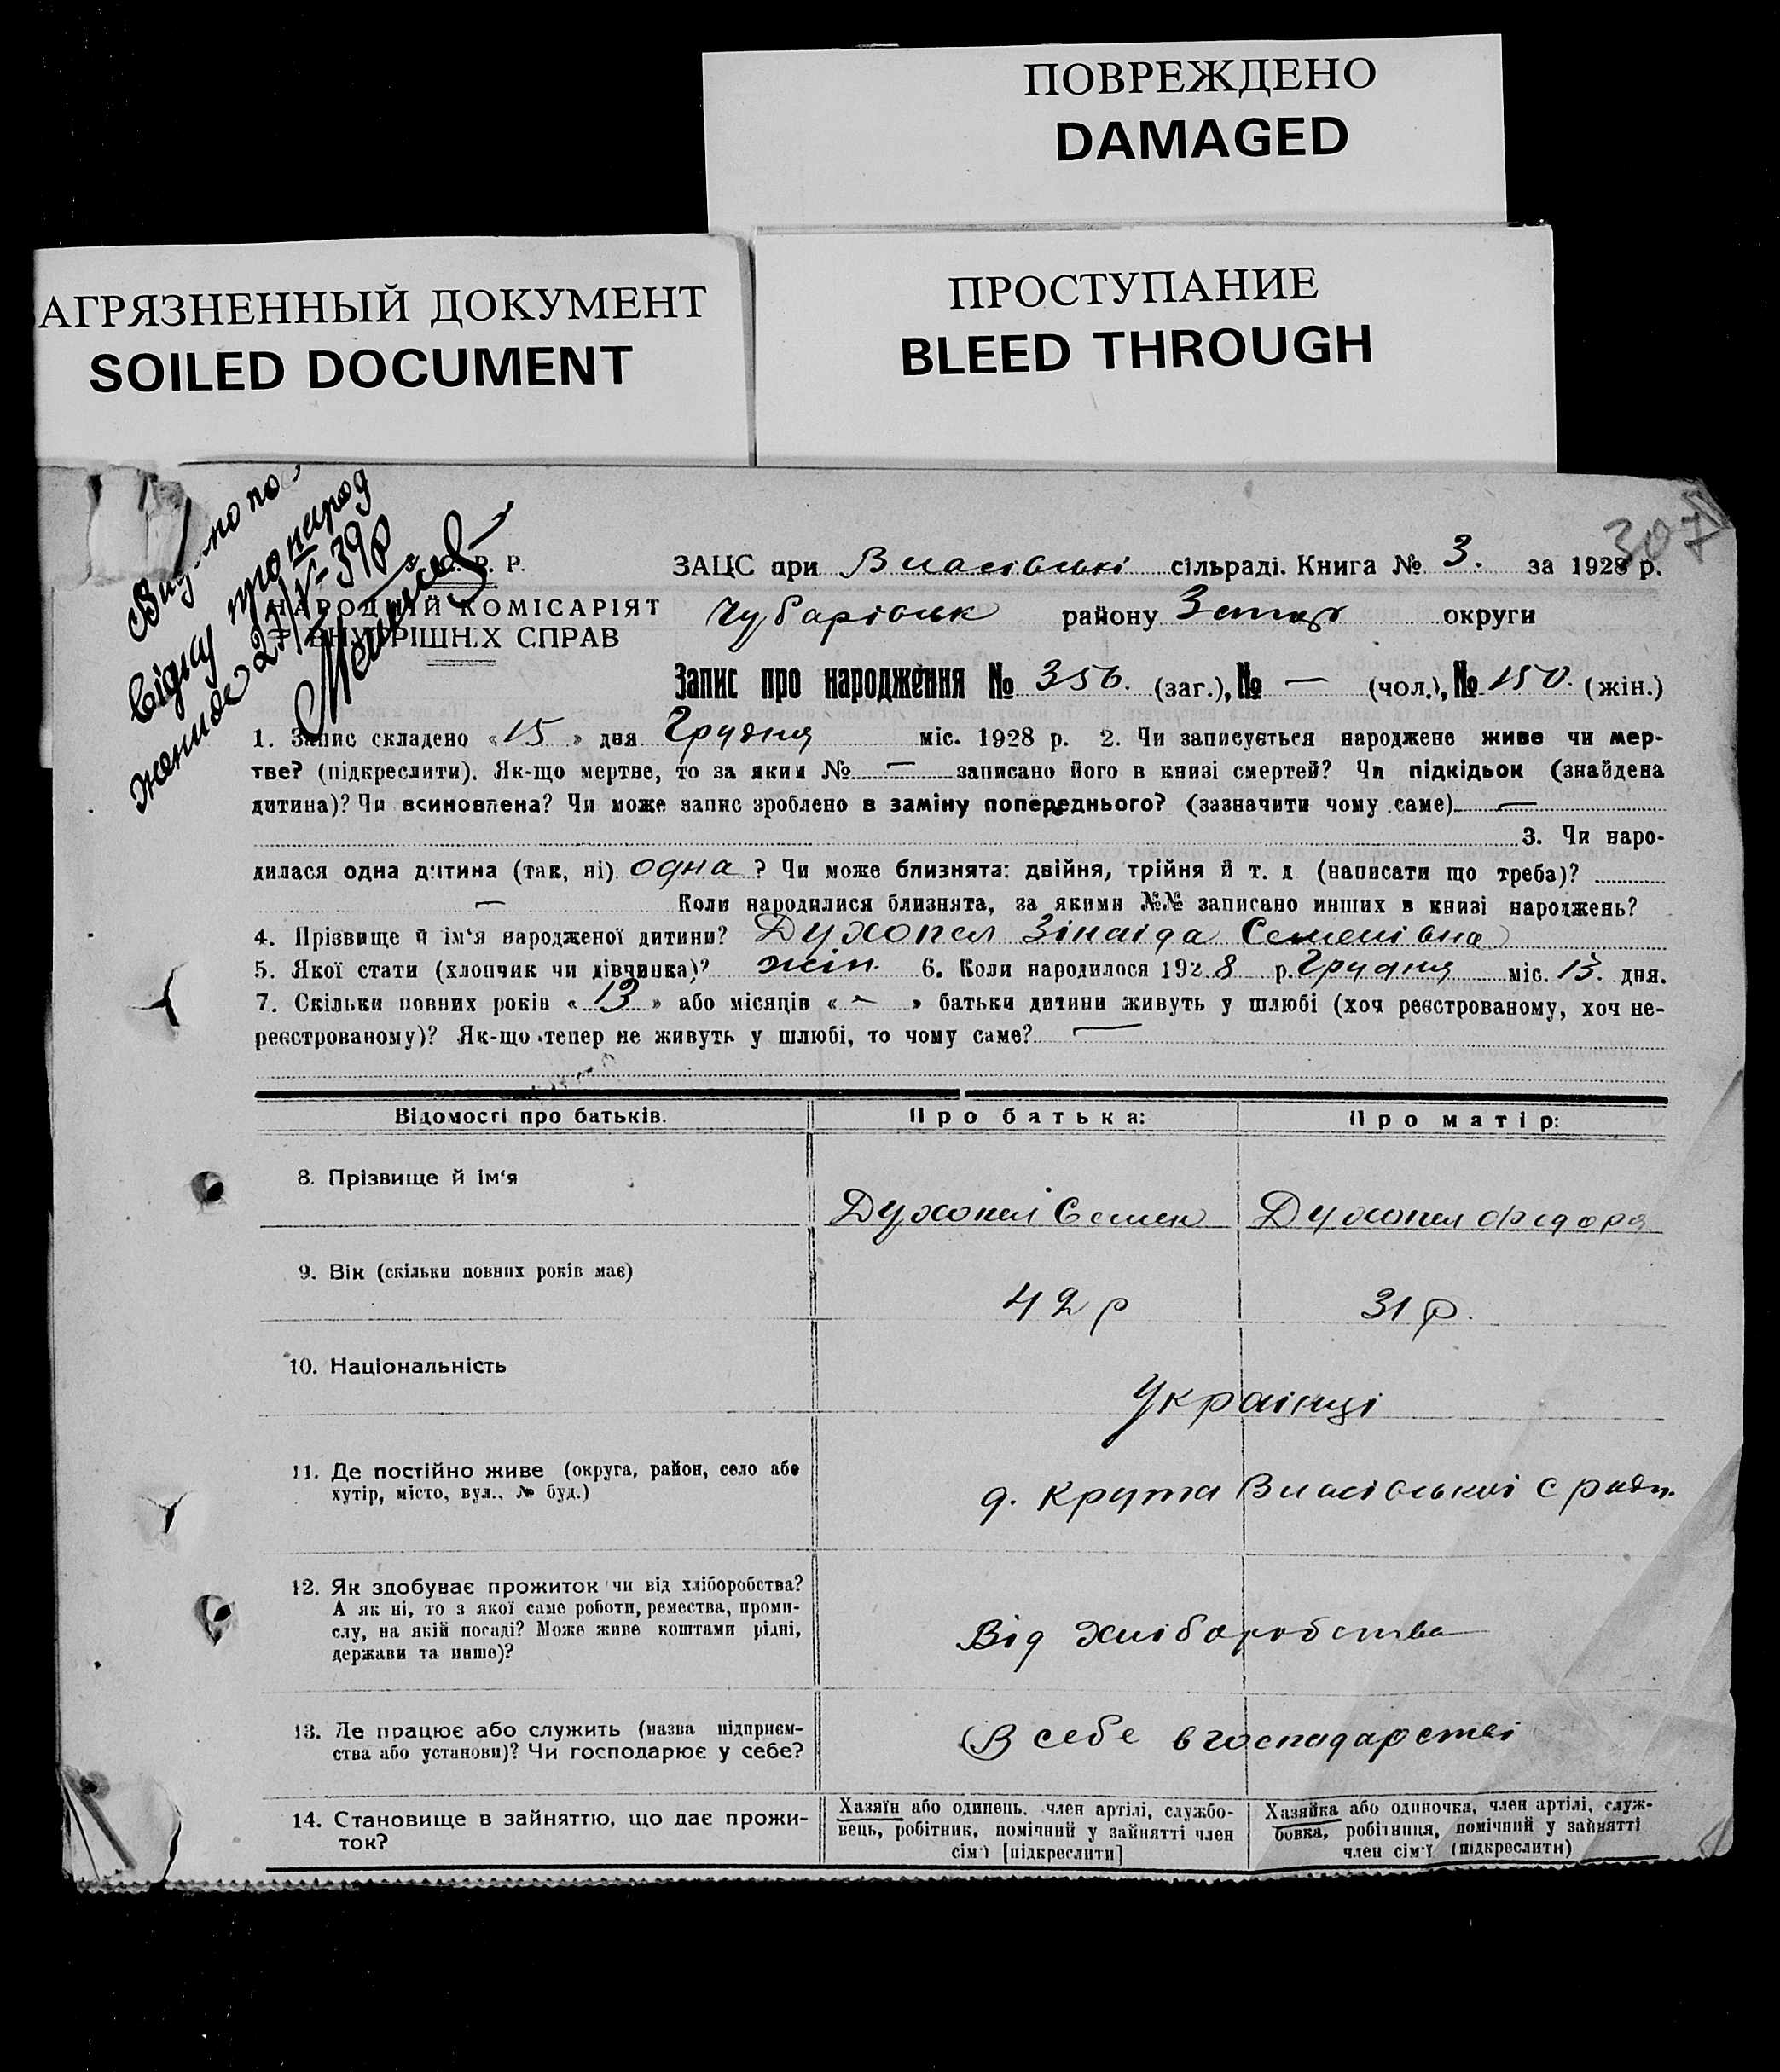 ПОВРЕЖДЕНО
DAMAGED
АГРЯЗНЕННЫЙ ДОКУМЕНТ
SOILED DOCUMENT
ПРОСТУПАНИЕ
BLEED THROUGH
307
Р. Р.
НАРОДНІЙ КОМІСАРІЯТ
ВНУТРІШН.Х СПРАВ
27/V-39р
ЗАЦС при Власівські сільраді. Книга № 3. за 1928 р.
Чубарівськ району Запор округи
Запис про народження № 356. (заг.), № — (чол.), № 150. (жін.)
1. Запис складено «15» дня Грудня міс. 1928 р. 2. Чи записується народжене живе чи мер-
тве? (підкреслити). Як-що мертве, то за яким № — записано його в книзі смертей? Чи підкідьок (знайдена
дитина)? Чи всиновлена? Чи може запис зроблено в заміну попереднього? (зазначити чому саме) —
3. Чи наро-
дилася одна дитина (так, ні) одна ? Чи може близнята: двійня, трійня й т. д (написати що треба)?
— Коли народилися близнята, за якими №№ записано инших в книзі народжень?
4. Прізвище й ім'я народженої дитини? Духопел Зінаіда Семенівна
5. Якої стати (хлопчик чи дівчинка)? жін. 6. Коли народилося 1928 р. Грудня міс. 13. дня.
7. Скільки повних років «13» або місяців «-» батьки дитини живуть у шлюбі (хоч реєстрованому, хоч не-
реєстрованому)? Як-що тепер не живуть у шлюбі, то чому саме? —
Відомості про батьків.
Про батька:
Про матір:
8. Прізвище й ім'я
Духопел Семен
Духопел Федора
9. Вік (скільки повних років має)
42 р
31 р.
10. Національність
Українці
11. Де постійно живе (округа, район, село або
хутір, місто, вул., № буд.)
д. Крута Власівської с ради.
12. Як здобуває прожиток чи від хліборобства?
А як ні, то з якої саме роботи, ремества, проми-
слу, на якій посаді? Може живе коштами рідні,
держави та инше)?
Від Хліборобства
13. Де працює або служить (назва підприєм-
ства або установи)? Чи господарює у себе?
В себе в господарстві
14. Становище в зайняттю, що дає прожи-
ток?
Хазяїн або одинець, член артілі, службо-
вець, робітник, помічний у зайнятті член
сім'ї [підкреслити]
Хазяйка або одиночка, член артілі, служ-
бовка, робітниця, помічний у зайнятті
член сім'ї (підкреслити)